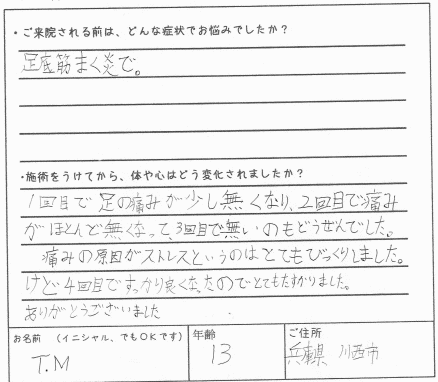 ・ご来院される前は、どんな症状でお悩みでしたか？
足底筋まく炎で。
・施術をうけてから、体や心はどう変化されましたか？
1回目で足の痛みが少し無くなり、2回目で痛み
がほとんど無くなって、3回目で無いのもどうぜんでした。
痛みの原因がストレスというのはとてもびっくりしました。
けど4回目ですっかり良くなったのでとてもたすかりました。
ありがとうございました
お名前 （イニシャル、でもOKです） 年齢 ご住所
T.M 13 兵庫県 川西市